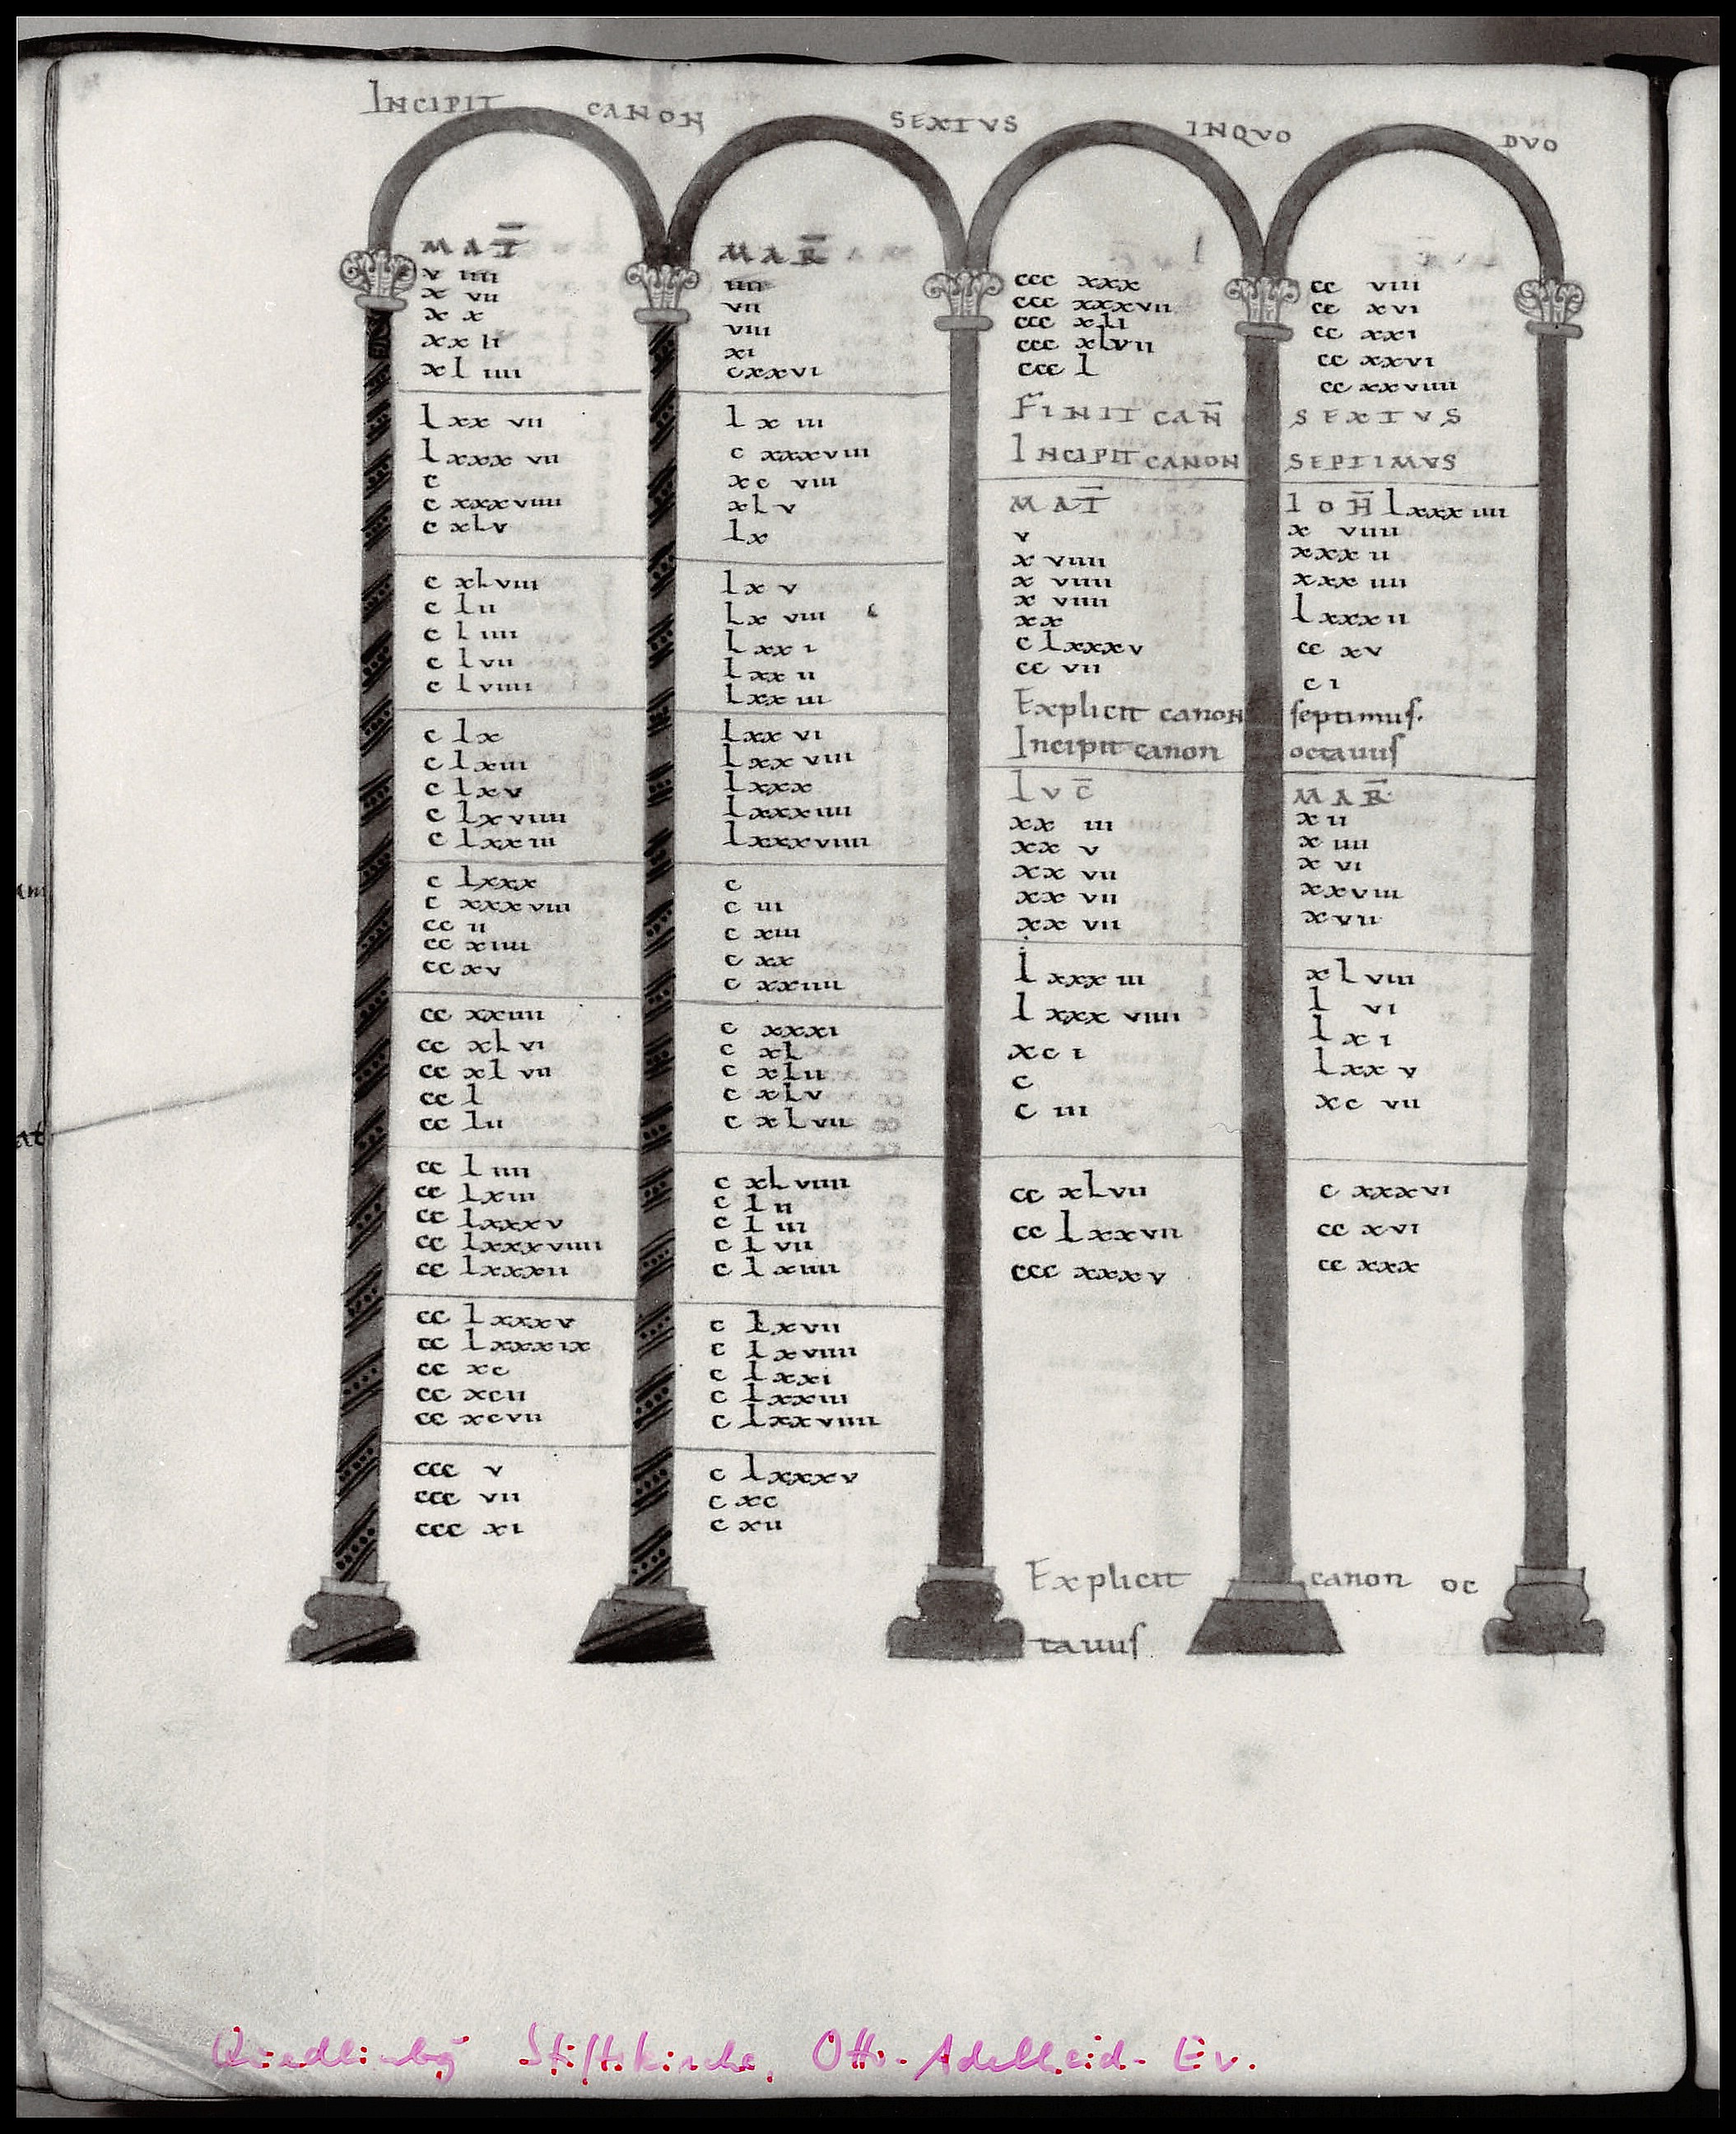 INCIPIT CANON SEXTVS INQVO DVO
MAT̄
v iiii
x vii
x x
xx ii
xl iiii
lxx vii
lxxx vii
c
c xxxviiii
c xlv
c xlviii
c lii
c liiii
c lvii
c lviiii
c lx
c lxiii
c lxv
c lxviiii
c lxxiii
c lxxx
c xxxviii
cc ii
cc xiiii
cc xv
cc xxiiii
cc xlvi
cc xl vii
cc l
cc lii
cc l iiii
cc lxiii
cc lxxxv
cc lxxxviiii
cc lxxxii
cc lxxxv
cc lxxxix
cc xc
cc xcii
cc xcvii
ccc v
ccc vii
ccc xi
MAR̄
iiii
vii
viii
xi
cxxvi
lx iii
c xxxviii
xc viii
xlv
lx
lx v
lx viii
lxx i
lxx ii
lxx iii
lxx vi
lxx viii
lxxx
lxxxiiii
lxxxviiii
c
c iii
c xiii
c xx
c xxiiii
c xxxi
c xl
c xlii
c xlv
c xlvii
c xlviiii
c lii
c l iii
c lvii
c lxiiii
c lxvii
c lxviiii
c lxxi
c lxxiii
c lxxviiii
c lxxxv
c xc
c xii
ccc xxx
ccc xxxvii
ccc xlii
ccc xlvii
ccc l
cc viii
cc xvi
cc xxi
cc xxvi
cc xxviiii
FINIT CAN̄ SEXTVS
INCIPIT CANON SEPTIMVS
MAT̄
v
x viiii
x viiii
x viiii
xx
c lxxxv
cc vii
IOH̄ lxxxiiii
x viiii
xxx ii
xxx iiii
lxxxii
cc xv
ci
Explicit canon septimus.
Incipit canon octauus
LVC̄
xx iii
xx v
xx vii
xx vii
xx vii
lxxxiii
lxxx viiii
xc i
c
c iii
cc xlvii
cc lxxvii
ccc xxxv
MAR̄
x ii
x iiii
x vi
xxviii
xvii
xl viii
l vi
lxi
lxx v
xc vii
c xxxvi
cc xvi
cc xxx
Explicit canon oc
tauus
am
at
Quedlinbg Stiftskirche, Otto-Adelheid-Ev.